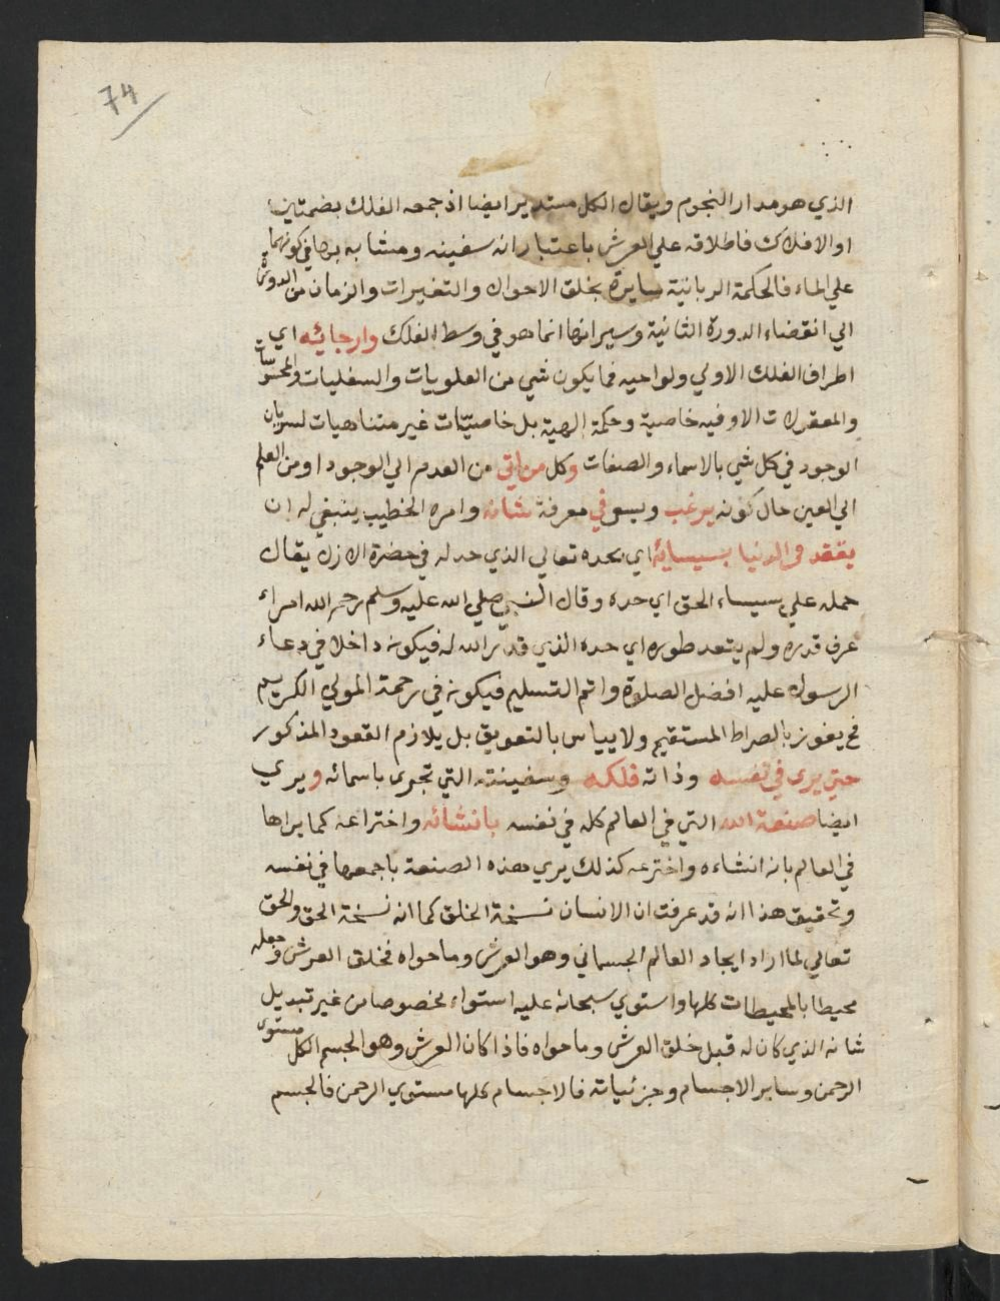 74
الذي هو مدار النجوم ويقال الكل مستدير ايضا اذ جمعه الفلك بضمتين
او الافلاك فاطلاقه علي العرش باعتبار انه سفينه ومشابه بها في كونهما
علي الماء فالحكمة الربانية سايرة بخلق الاحوال والتغيرات والزمان من الدورة
الي انقضاء الدورة الثانية وسيرانها انما هو في وسط الفلك وارجائه اي
اطراف الفلك الاولي ونواحيه فما يكون شي من العلويات والسفليات والمحسوسات
والمعقولات الا وفيه خاصية وحكمة الهية بل خاصيّات غير متناهيات لسريان
الوجود في كل شي بالاسماء والصفات وكل من اتي من العدم الي الوجود او من العلم
الي العين حال كونه يرغب ويسعي في معرفة شانه وامره الخطيب ينبغي له ان
يقعد في الدنيا بسيسائه اي بحده تعالي الذي حد له في حضرة الازل يقال
حمله علي سيساء الحق اي حده وقال النبي صلي الله عليه وسلم رحم الله امراء
عرف قدره ولم يتعد طوره اي حده الذي قدّر الله له فيكون داخلا في دعاء
الرسول عليه افضل الصلاة واتم التسليم فيكون في رحمة المولي الكريم
فح يفوز بالصراط المستقيم ولا يياس بالتعويق بل يلازم القعود المذكور
حتي يري في نفسه وذاته فلكه وسفينته التي تجري باسمائه ويري
ايضا صنعة الله التي في العالم كله في نفسه بانشائه واختراعه كما يراها
في العالم بانه انشاءه واخترعه كذلك يري هذه الصنعة باجمعها في نفسه
وتحقيق هذا انه قد عرفت ان الانسان نسخة الخلق كما انه نسخة الحق والحق
تعالي لما اراد ايجاد العالم الجسماني وهو العرش وما حواه فخلق العرش وجعله
محيطا بالمحيطات كلها واستوي سبحانه عليه استواء مخصوصا من غير تبديل
شانه الذي كان له قبل خلق العرش وما حواه فاذا كان العرش وهو الجسم الكل مستوي
الرحمن وساير الاجسام وجزئياته فالاجسام كلها مستوي الرحمن فالجسم